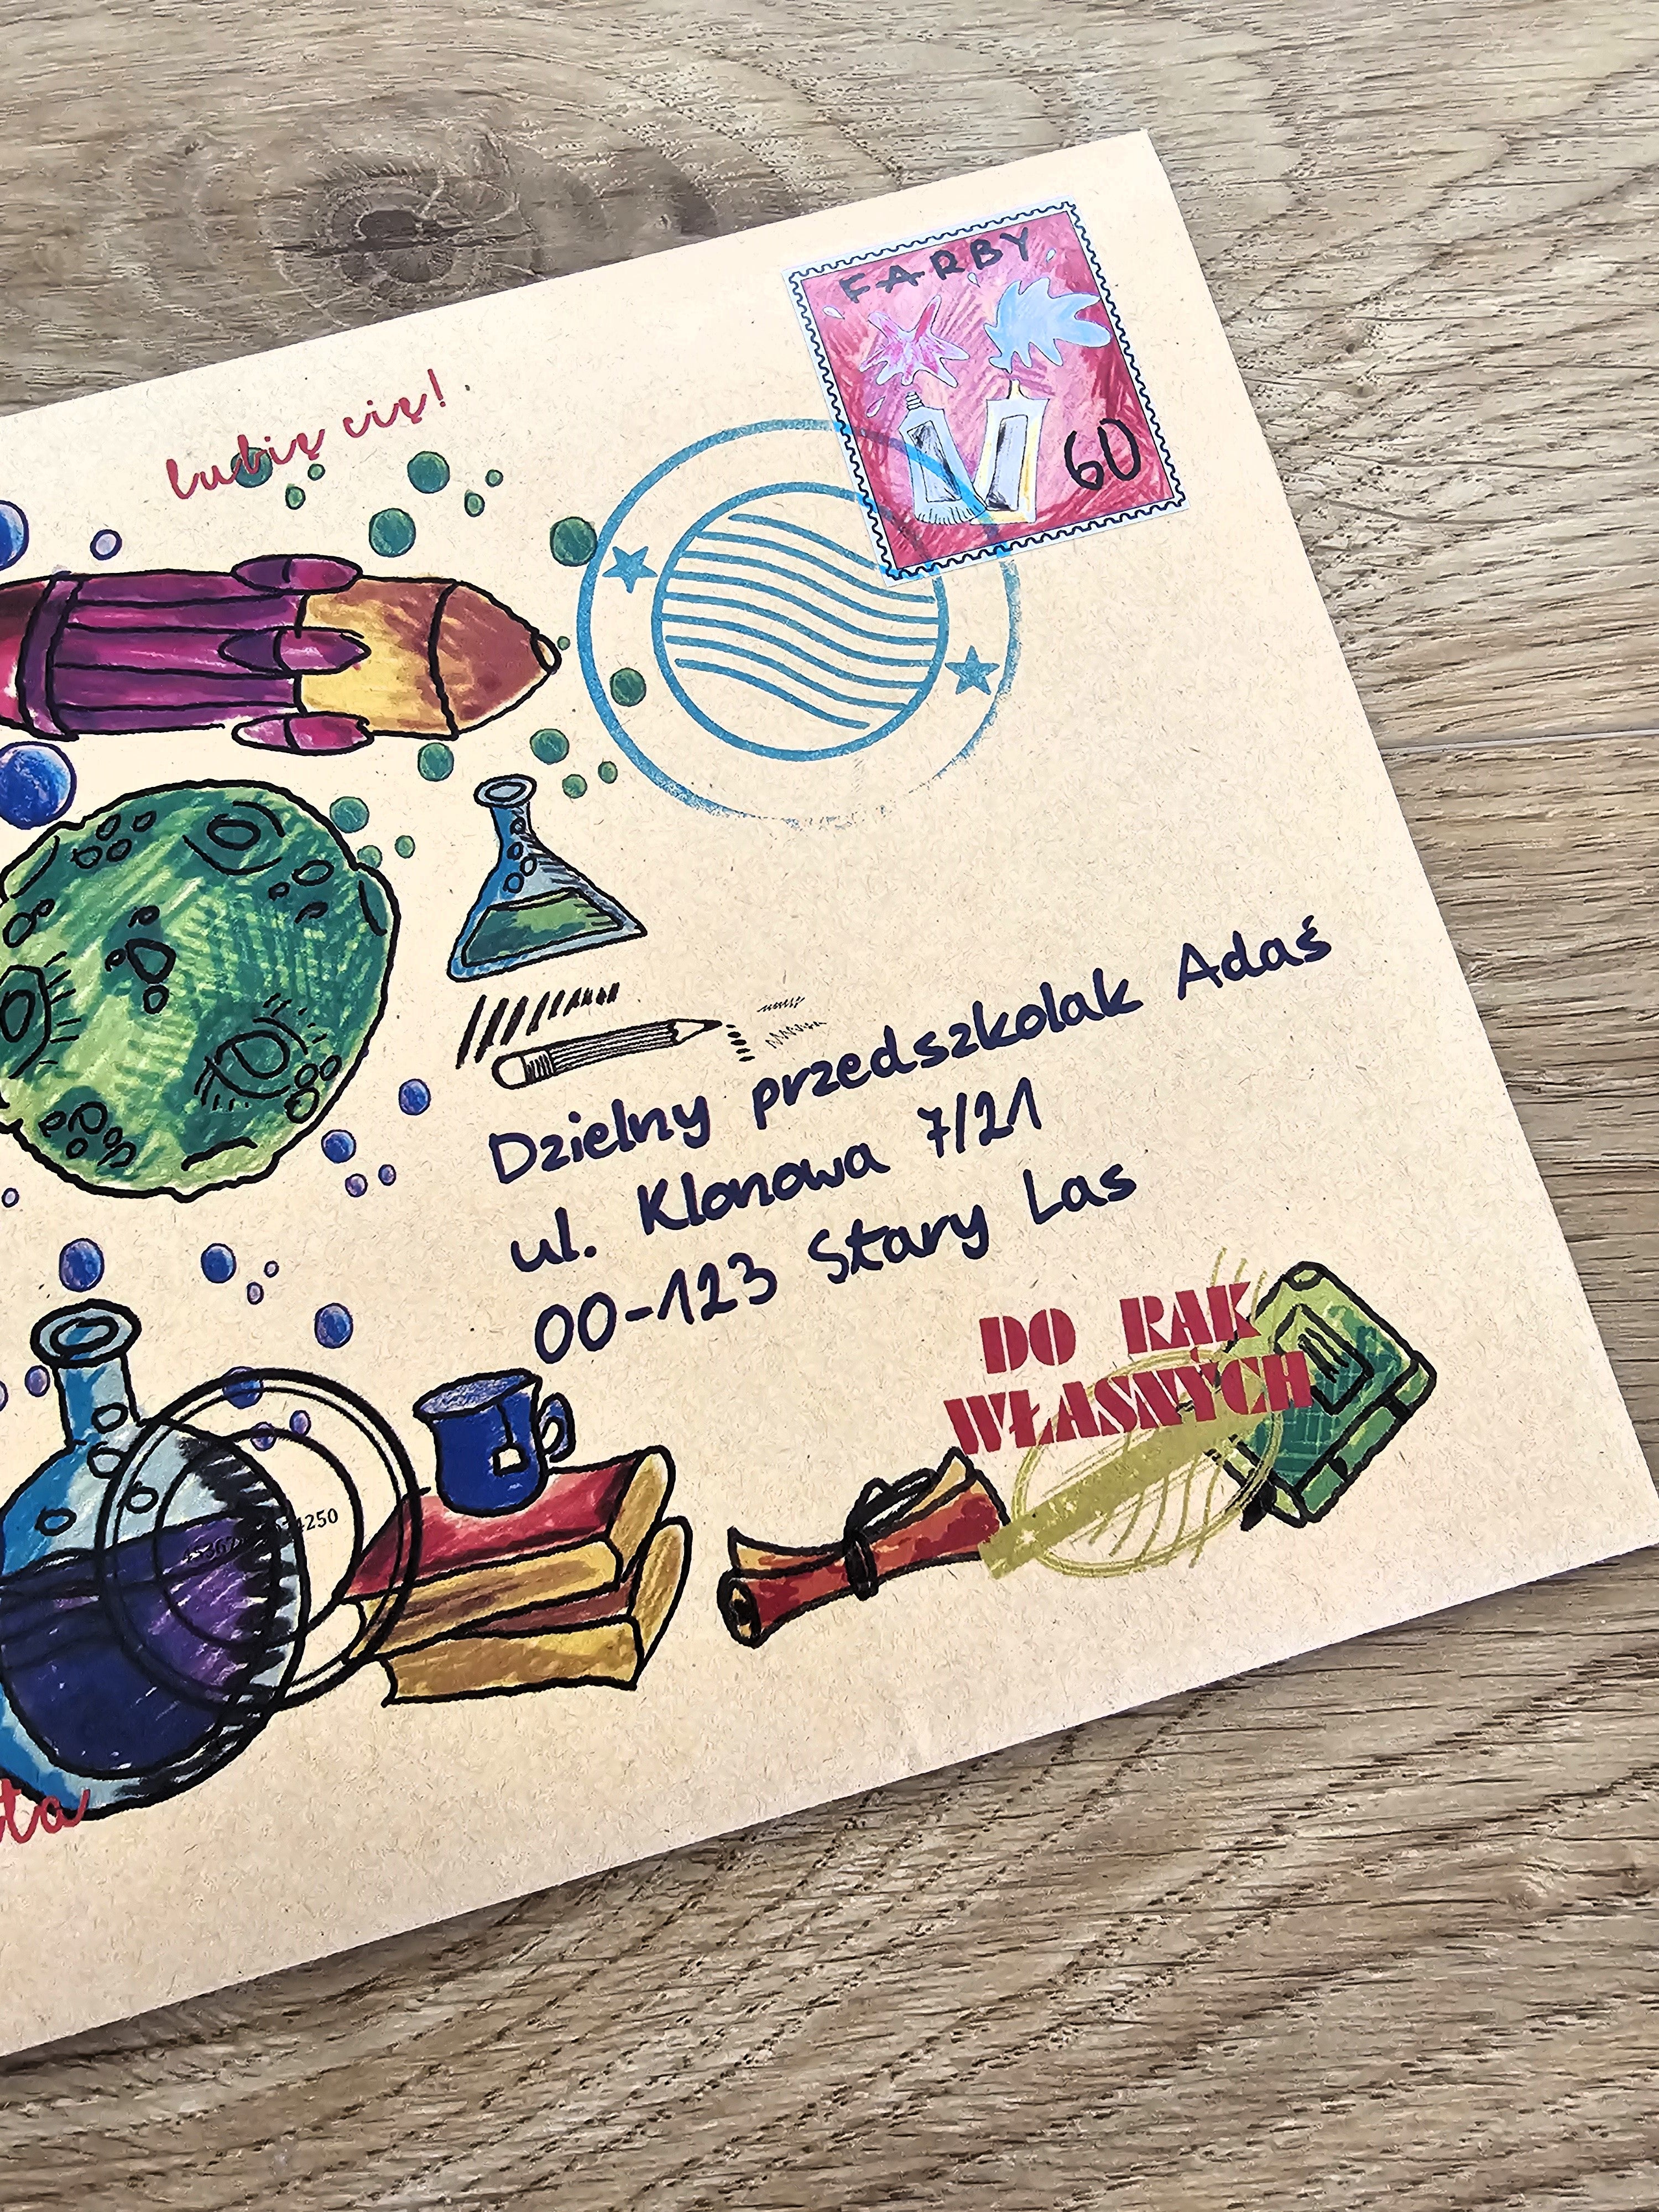 FARBY
60
lubię cię!
Dzielny przedszkolak Adaś
ul. Klonowa 7/21
00-123 Stary Las
DO RĄK
WŁASNYCH